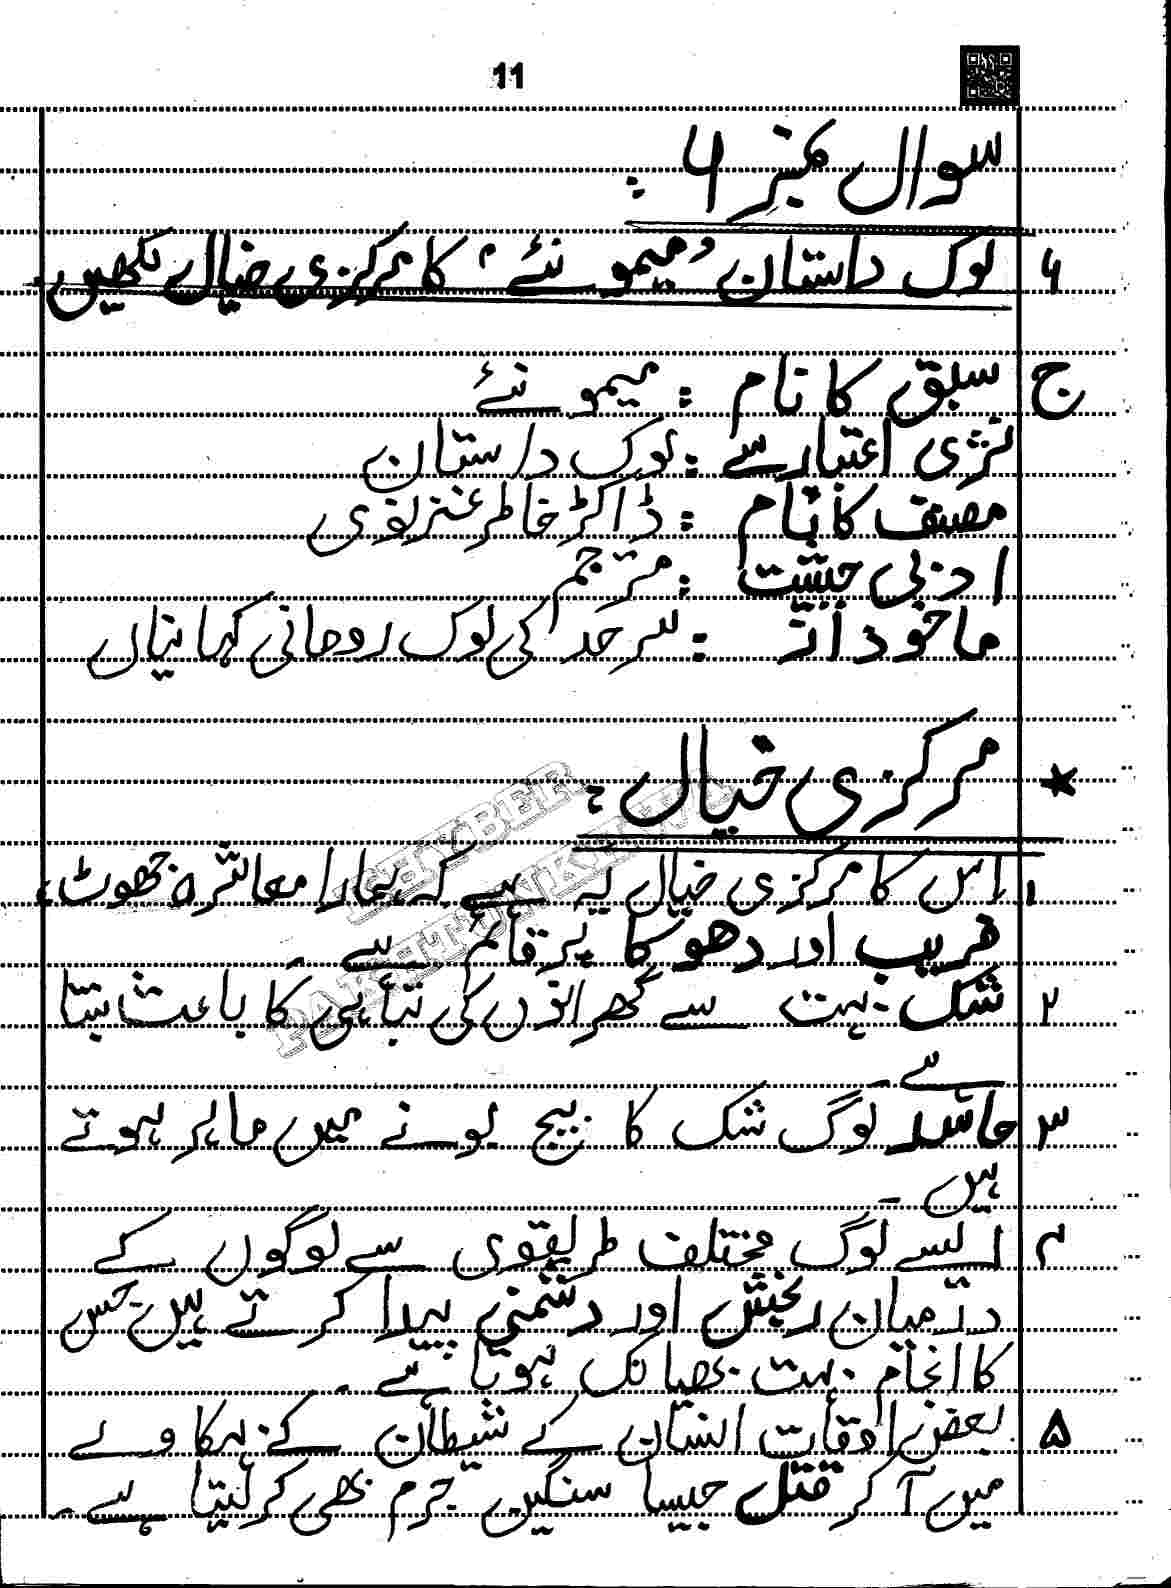 11
سوال نمبر ۴ :
۴ لوک داستان ”میمو نئے“ کا مرکزی خیال لکھیں۔
ج سبق کا نام : میمو نئے
نثری اعتبار سے : لوک داستان
مصنف کا نام : ڈاکٹر خاطر غزنوی
ادبی حیثیت : مترجم
ماخوذ از : سرحد کی لوک رومانی کہانیاں
★ مرکزی خیال :
۱ اس کا مرکزی خیال یہ ہے کہ ہمارا معاشرہ جھوٹ،
فریب اور دھوکا پر قائم ہے ۔
۲ شک بہت سے گھرانوں کی تباہی کا باعث بنتا
ہے ۔
۳ حاسد لوگ شک کا بیج بونے میں ماہر ہوتے
ہیں ۔
۴ ایسے لوگ مختلف طریقوں سے لوگوں کے
درمیان رنجش اور دشمنی پیدا کرتے ہیں جس
کا انجام بہت بھیانک ہوتا ہے ۔
۵ بعض اوقات انسان کے شیطان کے بہکاوے
میں آ کر قتل جیسا سنگین جرم بھی کر لیتا ہے ۔
KHYBER
PAKHTUNKHWA